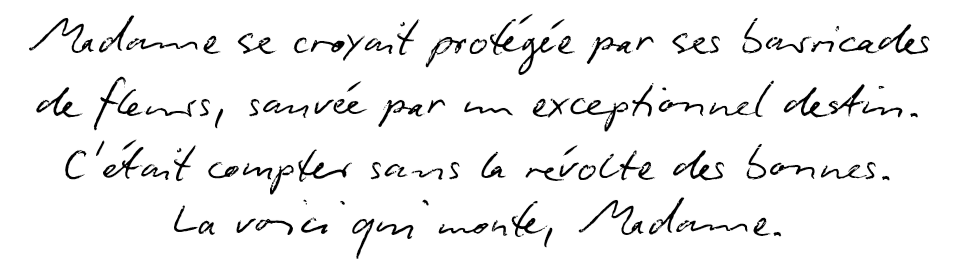 Madame se croyait protégée par ses barricades
de fleurs, sauvée par un exceptionnel destin.
C'était compter sans la révolte des bonnes.
La voici qui monte, Madame.